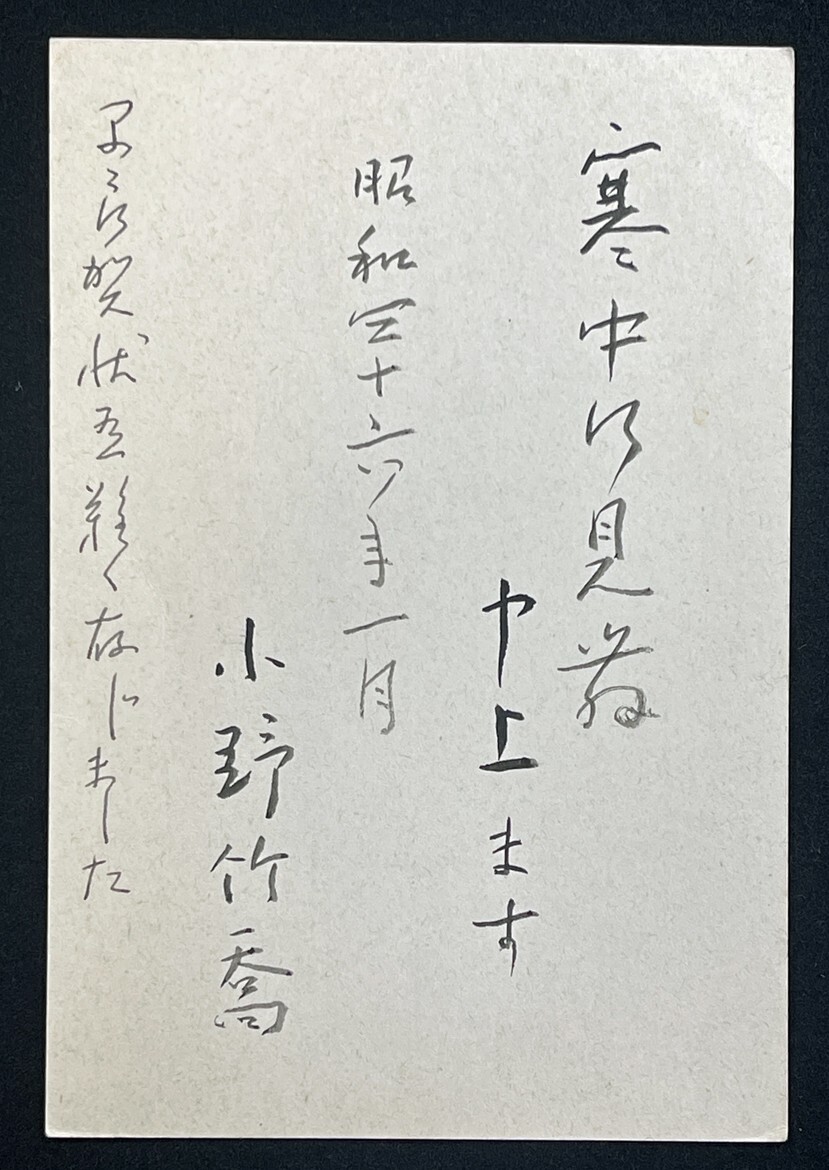 寒中御見舞
申上ます
昭和四十六年一月
小野竹喬
早々御賀状有難く存じました